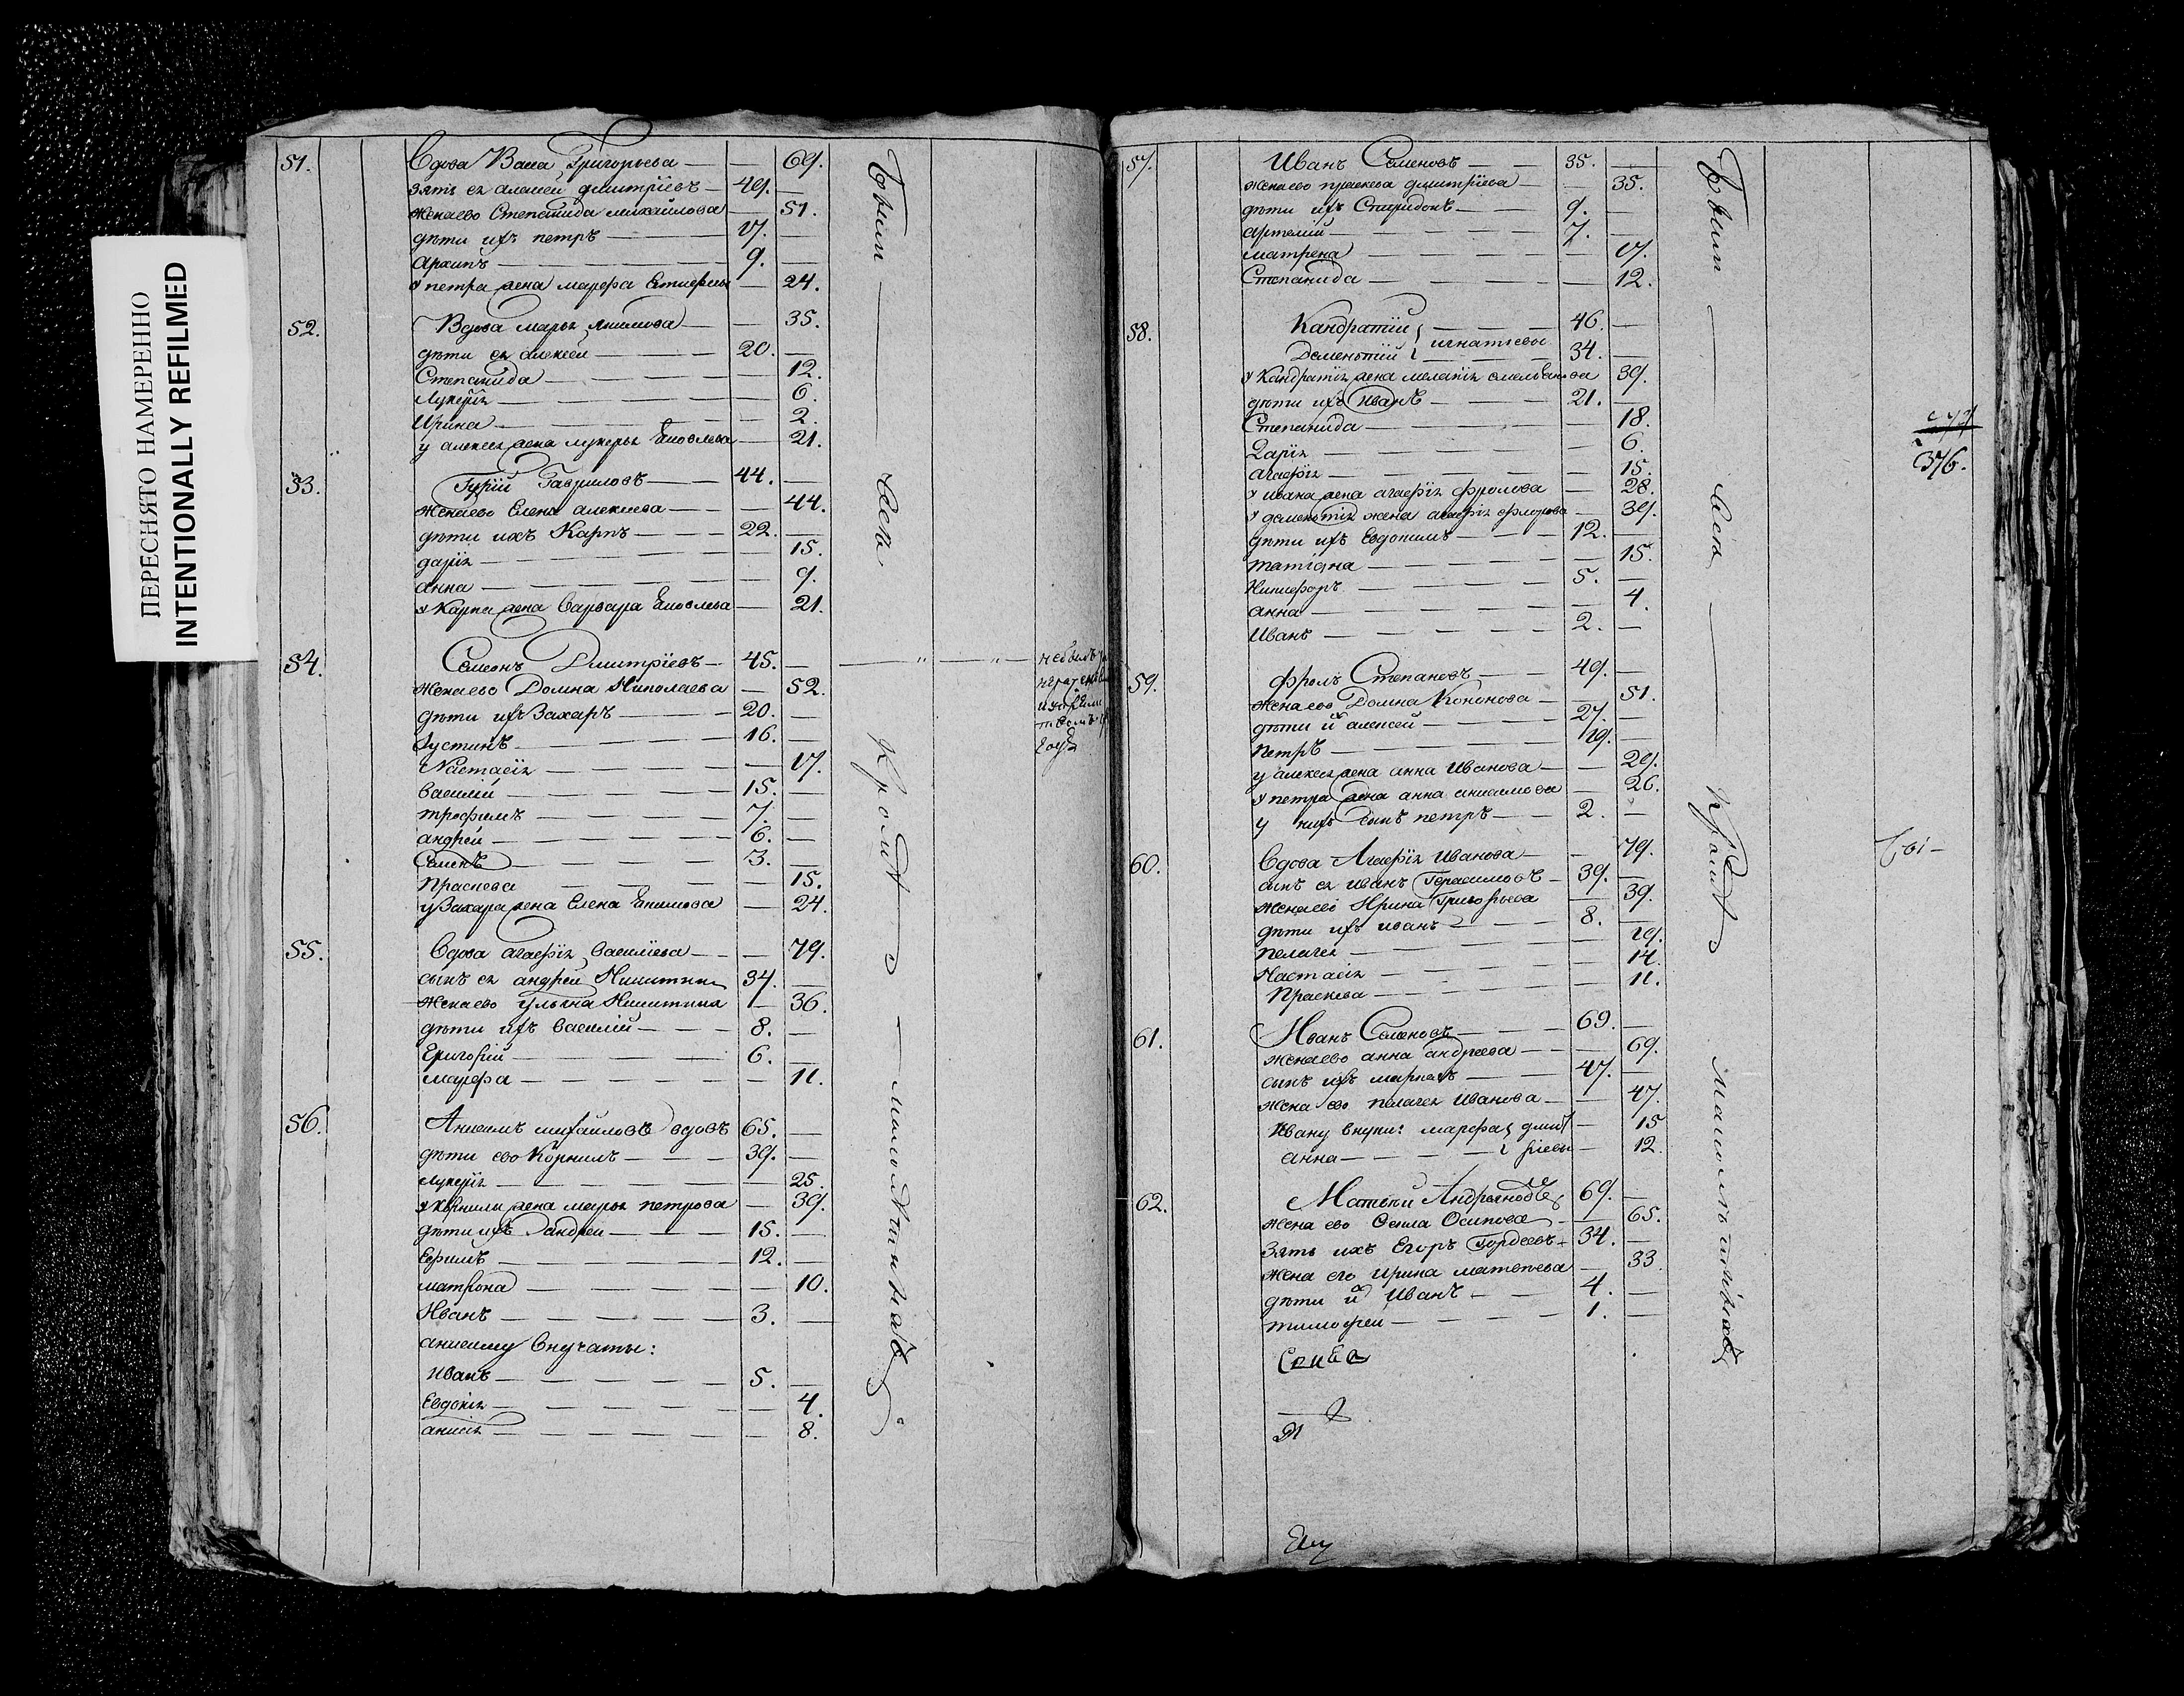 ПЕРЕСНЯТО НАМЕРЕННО
INTENTIONALLY REFILMED
51. Вдова Васса Григорьева — — 69.
зять ея алексей дмитрїевъ — 49. —
жена ево Степанида михайлова — 51.
дѣти ихъ петръ — 17. —
Архипъ — 9. —
у петра жена марфа — 24.
52. Вдова марья Якимова — — 35.
дѣти ея алексей — 20. —
Степанида — — 12.
Лукерїя — — 6.
Ирина — — 2.
у алексея жена лукерья Яковлева — 21.
53. Гурїй Гавриловъ — 44. —
жена ево Елена алексеева — — 44.
дѣти ихъ Карпъ — 22. —
дарїя — — 15.
анна — — 9.
у Карпа жена варвара Яковлева — 21.
54. Семенъ Дмитрїевъ — 45. —
жена ево Домна Николаева — 52.
дѣти ихъ Захаръ — 20. —
Густинъ — 16. —
Настасїя — — 17.
василїй — 15. —
трофимъ — 7. —
андрей — 6. —
Семенъ — 3. —
Праскева — — 15.
у Захара жена Елена Якимова — 24.
55. Вдова агафїя васильева — — 79.
сынъ ея андрей Никитин 34. —
жена ево ульяна Никитина — 36.
дѣти ихъ василїй — 8. —
Григорїй — 6. —
марфа — — 11.
56. Анисимъ михайловъ вдовъ 65. —
дѣти ево Корнилъ — 39. —
лукерїя — — 25.
у Корнила жена марья петрова — 39.
дѣти ихъ андрей — 15. —
Ефимъ — 12. —
матрона — — 10.
Иванъ — 3. —
анисиму внучаты:
иванъ — 5. —
Евдокїя — — 4.
анисья — — 8.
Были — все — кромѣ — малолѣтнихъ
небылъ
57. Иванъ Семеновъ — 35. —
жена ево праскева дмитрїева — 35.
дѣти ихъ Спиридонъ — 9. —
артемїй — 7. —
матрена — — 17.
Степанида — — 12.
58. Кандратїй } — 46. —
игнатьевы
Дементїй } — 34. —
у Кандратїя жена меланїя емельянова 39.
дѣти ихъ Иванъ — 21. —
Степанида — — 18.
Дарїя — — 6.
агафїя — — 15.
у ивана жена агафїя фролова — 28.
у дементїя жена агафїя — 39.
дѣти ихъ Евдокимъ — 12. —
татїяна — — 15.
Никифоръ — 5. —
анна — — 4.
Иванъ — 2. —
59. Фролъ Степановъ — 49. —
жена ево Домна Кононова — 51.
дѣти их алексей — 27. —
Петръ — 19. —
у алексея жена анна Иванова — 29.
у петра жена анна анисимова — 26.
у нихъ сынъ петръ — 2. —
60. Вдова Агафїя Иванова — 79.
сынъ ея иванъ Герасимовъ — 39. —
жена ево Ирина Григорьева — 39.
дѣти ихъ иванъ — 8. —
пелагея — — 19.
Настасїя — — 14.
Праскева — — 11.
61. Иванъ Семеновъ — 69. —
жена ево анна андреева — 69.
сынъ ихъ маркелъ — 47. —
жена ево пелагея Иванова — 47.
Ивану внуки: марфа } дмит — 15
анна — } рїевы — 12.
62. Матвей Андреяновъ 69. —
жена ево Фекла Осипова — 65.
Зять ихъ Егоръ Гордеевъ — 34. —
жена его Ирина матвеева — 33.
дѣти их Иванъ — 4. —
тимофей — 1. —
Были — все — кромѣ — малолѣтнихъ
376.